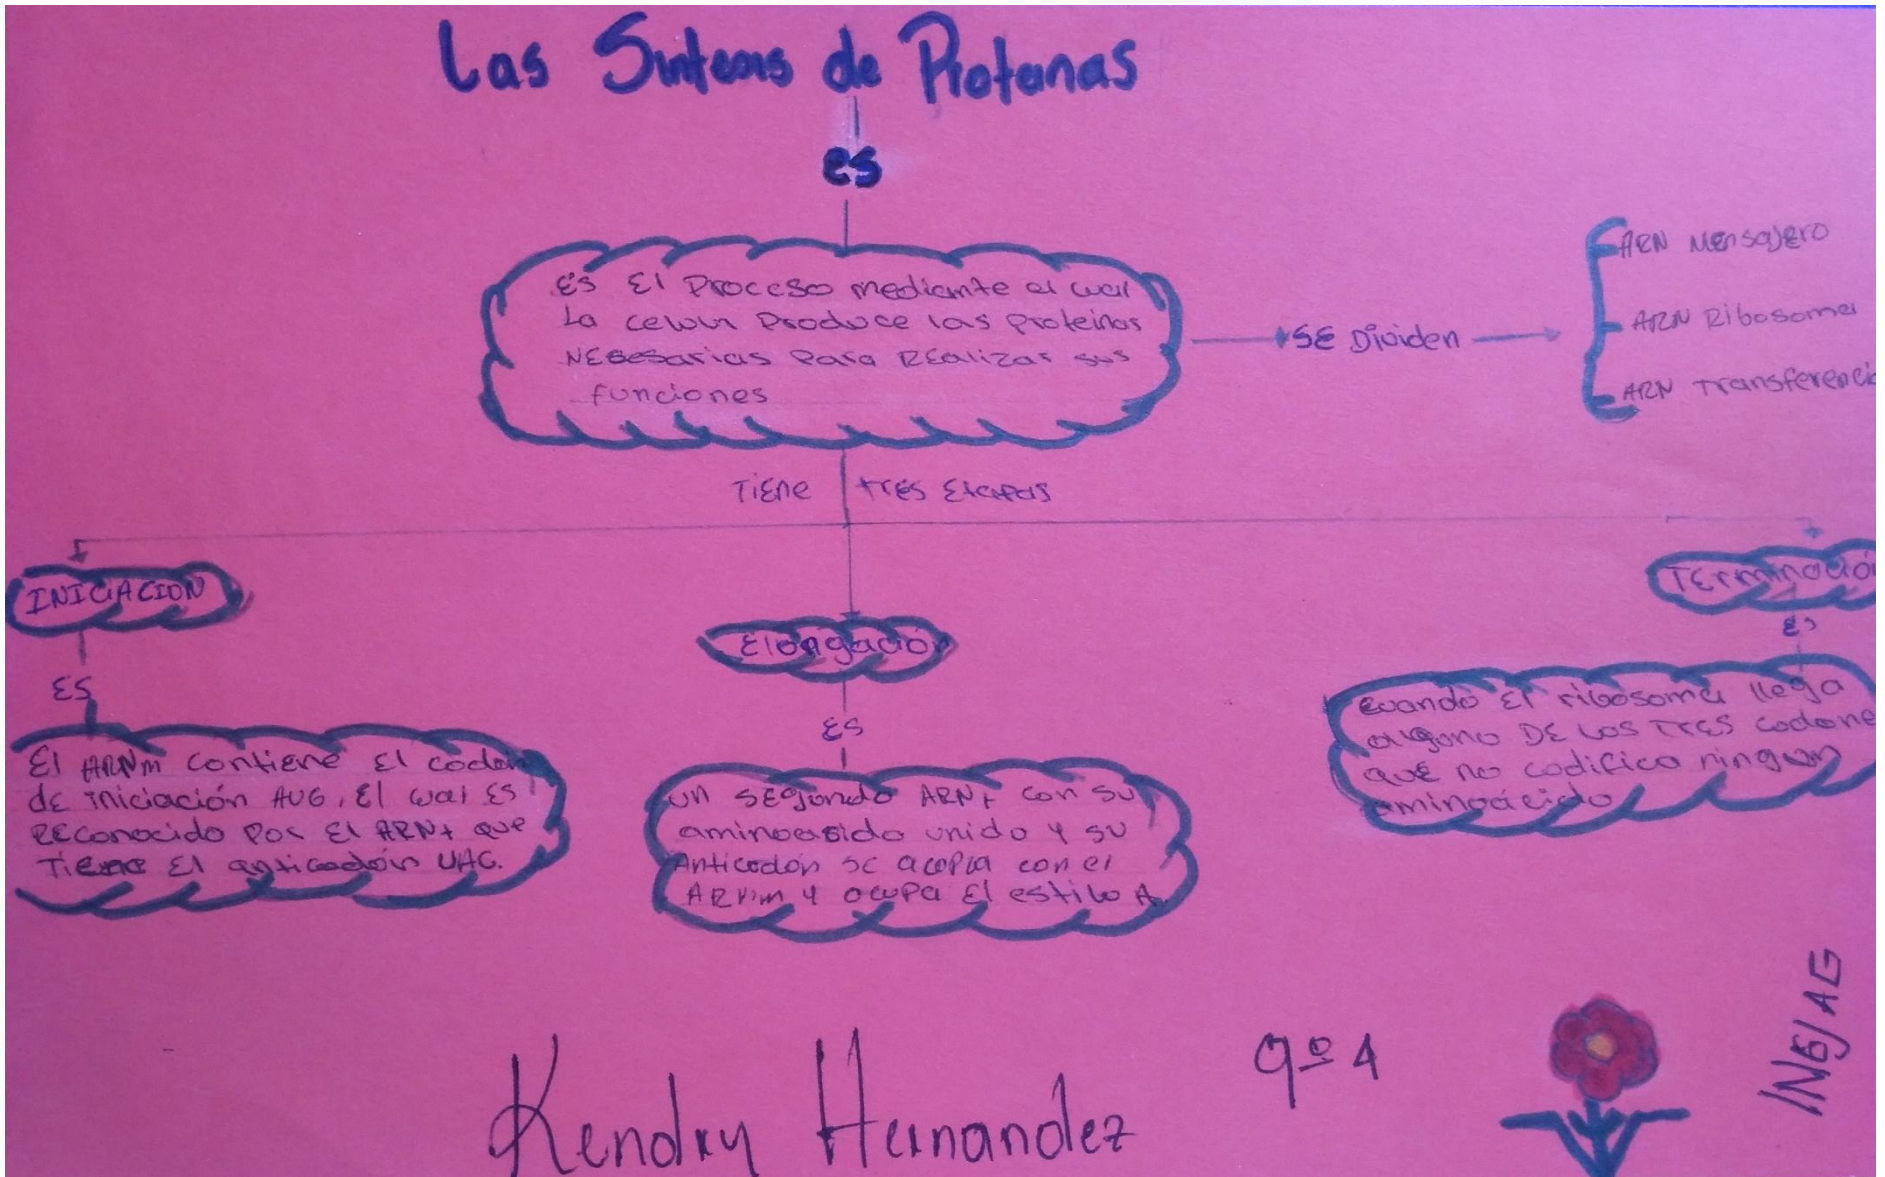 Las Sintesis de Proteinas
es
Es El Proceso mediante el cual
La celula Produce las Proteinas
NEcesarias Para REalizar sus
funciones
SE Dividen
ARN MEnsajEro
ARN Ribosomal
ARN Transferencia
TiEne tres Etapas
INICIACION
ES
El ARNm contiene El codon
de iniciación AUG, El cual Es
REconocido Por El ARNt que
TiEne El anticodón UAC.
Elongación
ES
un SEgundo ARNt con su
aminoasido unido y su
Anticodón se acopla con el
ARNm y ocupa El estilo A.
TErminació
Es
cuando El ribosoma llega
alguno DE LOS TRES codone
que no codifica ningun
aminoácido
Kendry Hernandez
9º 4